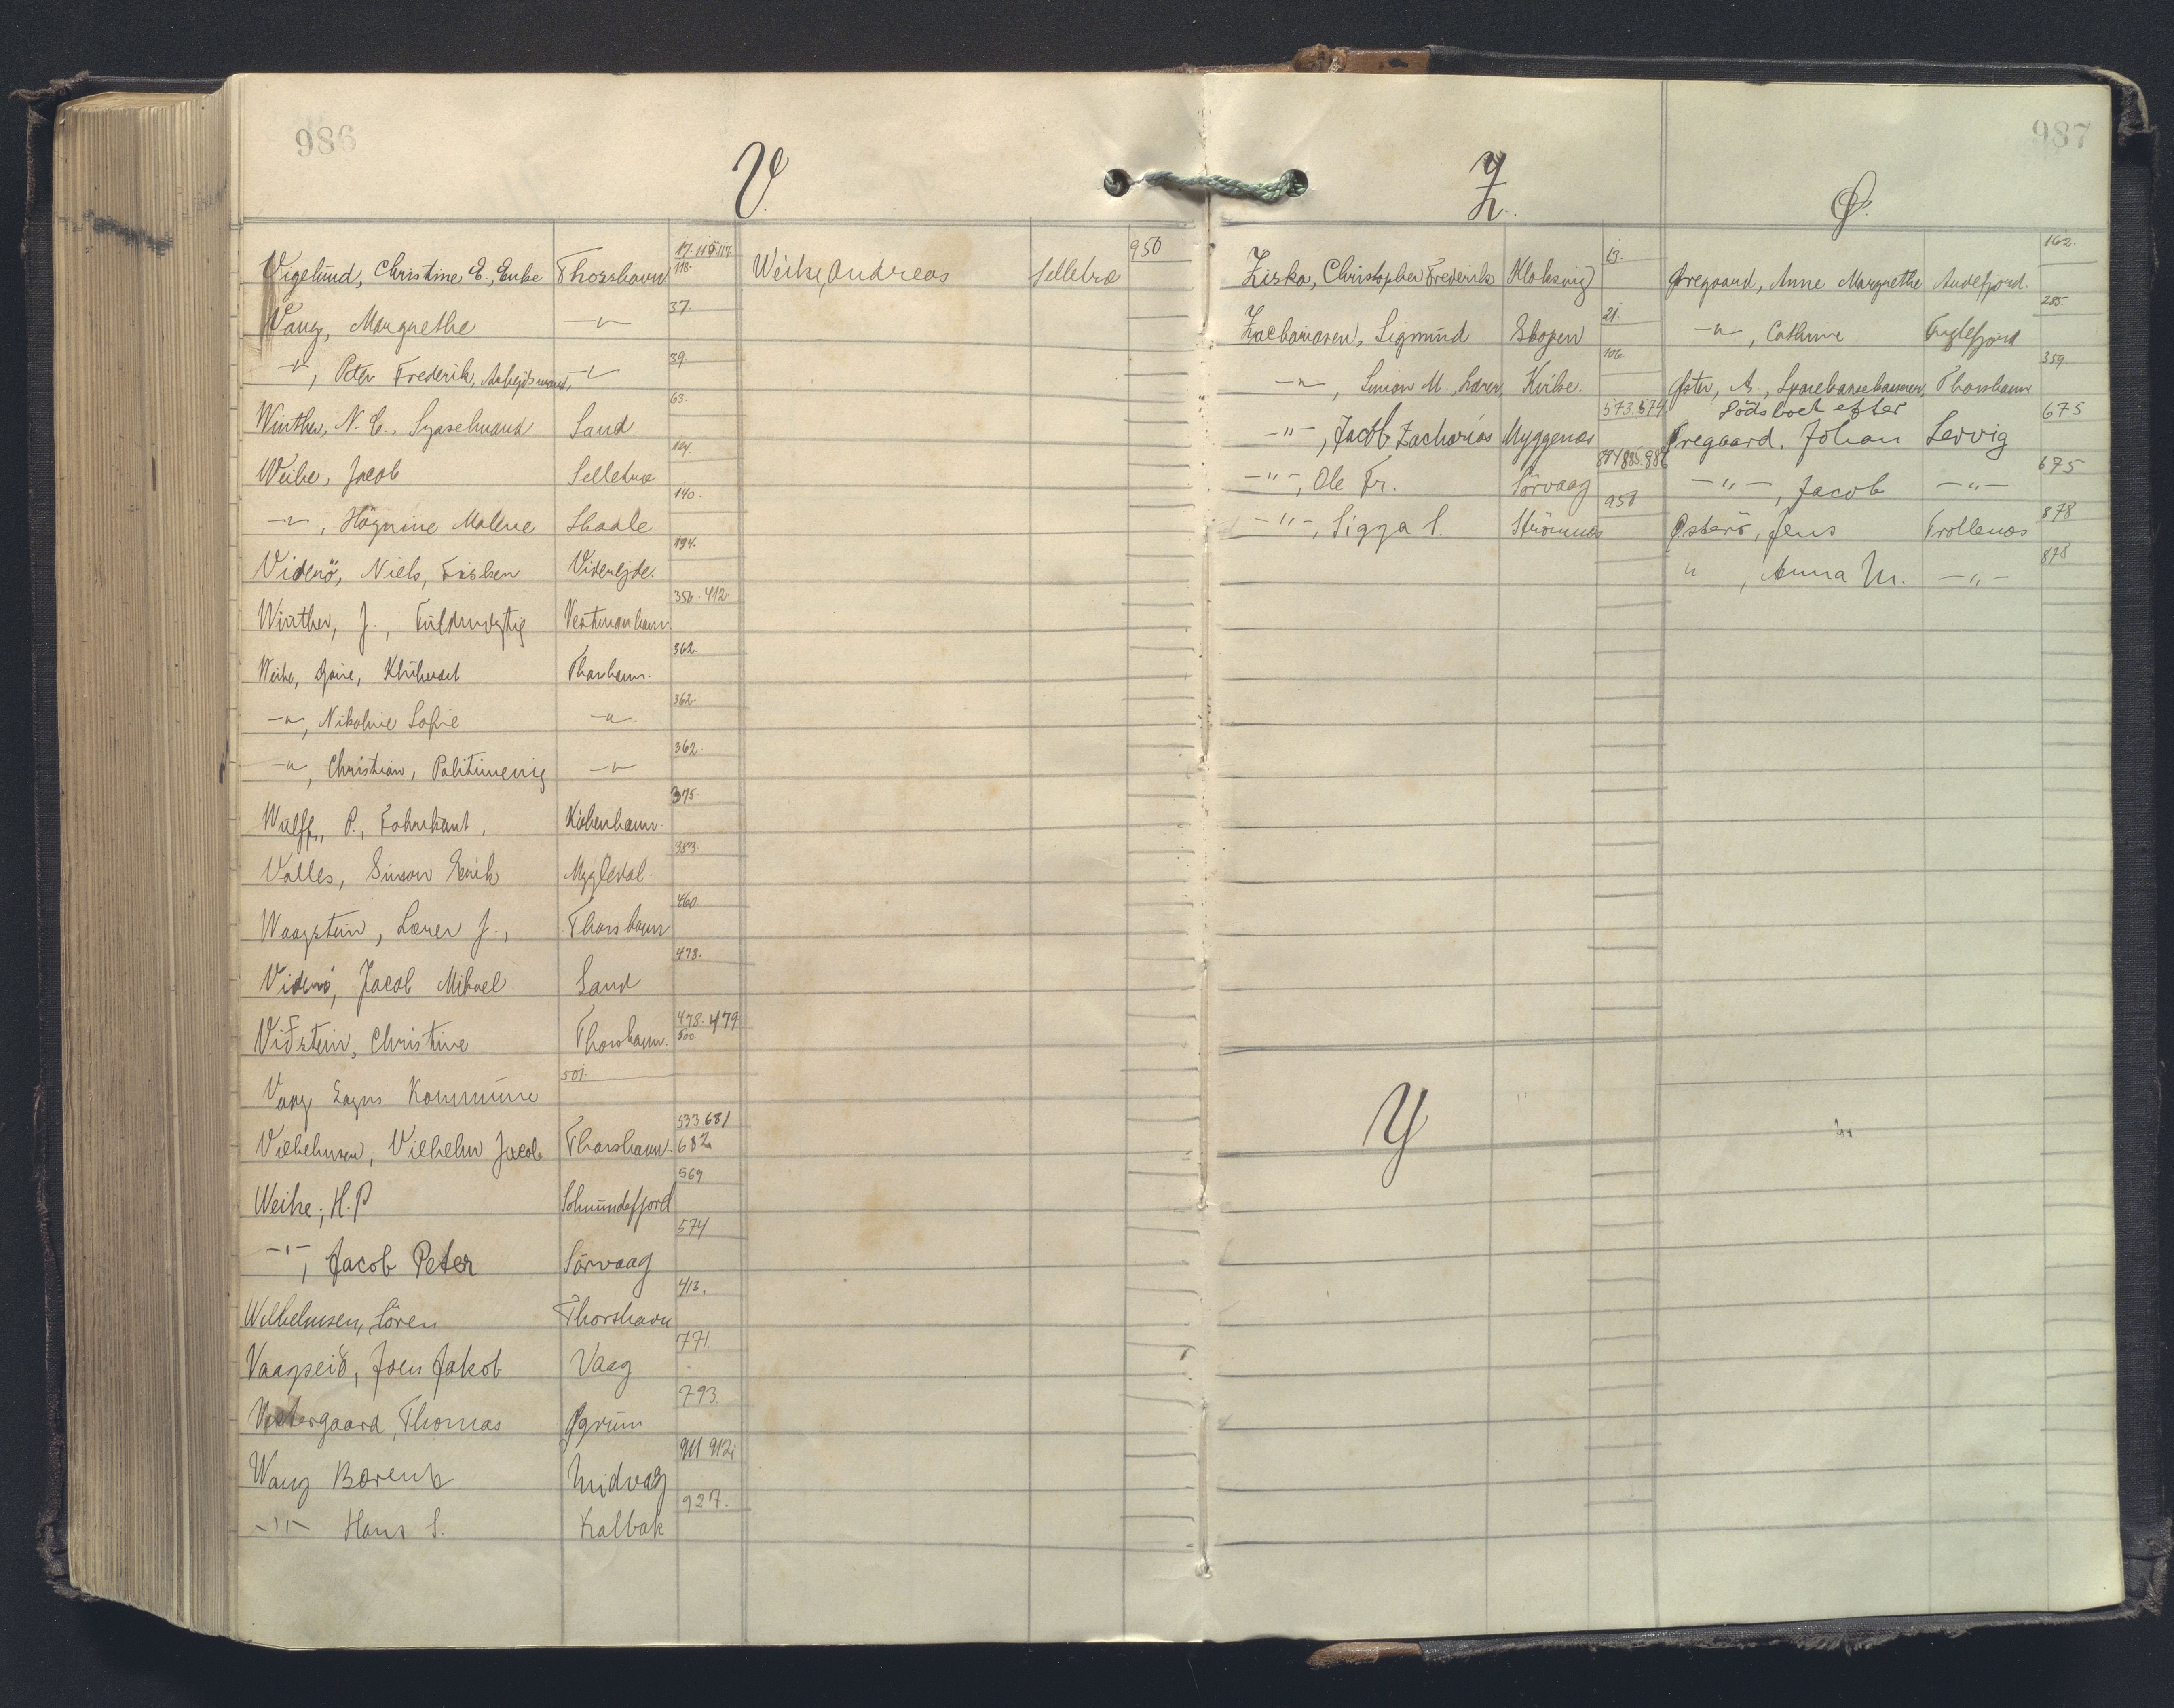 986
V.
Vigelund, Christine E., Enke Thorshavn 17. 115 117 118.
Vang, Margrethe -"- 37.
-"-, Peter Frederik, Arbejdsmand, -"- 39.
Winther, N. C., Sysselmand Sand 63.
Weihe, Jacob Selletræ 124.
-"-, Högnine Malene Skaale 140.
Viderö, Niels, Fisker Viderejde. 194.
Winther, J., Fuldmægtig Vestmanhavn 356. 412.
Weihe, Thorshavn. 362.
-"-, Nikoline Sofie -"-. 362.
-"-, Christian, Politimenig -"- 362.
Wulff, P., København. 375.
Valles, Simon Mygledal. 383.
Waagstein, Lærer J., Thorshavn 460
Viderö, Jacob Mikael Sand 478.
Vidstein, Christine Thorshavn. 478. 479 500
Vaag Sogns Kommune 501.
Vilhelmsen, Vilhelm Jacob Thorshavn. 533 681 682
Weihe, H. P Solmundefjord 569
-"-, Jacob Peter Sörvaag 574
Wilhelmsen, Sören Thorshavn 413.
Vaagseið, Joen Jakob Vaag 771.
Vestergaard, Thomas Øgrum 793.
Wang Barent Midvag 911 912
-"- Hans S. Kalbak 927.
Weihe, Andreas Selletræ 950
987
Z.
Ziska, Christopher Frederik Klaksvig 19.
Zachariasen, Sigmund Skopen 21.
-"-, Simon M., Lærer, Kirke. 106
-"-, Jacob Zacharias Myggenæs 573. 574.
-"-, Ole Fr. Sörvaag 884 885. 886
-"-, Sigga S. Strömnæs 950
Y
Ø.
Øregaard, Anne Margrethe Andefjord. 162.
-"-, Cathrine Fuglefjord 285
Øster, A., Thorshavn 359
Dödsboet efter
Øregaard, Johan Lervig 675
-"-, Jacob -"- 675
Østerö, Jens Trollenæs 878
" , Anna M. -"- 878